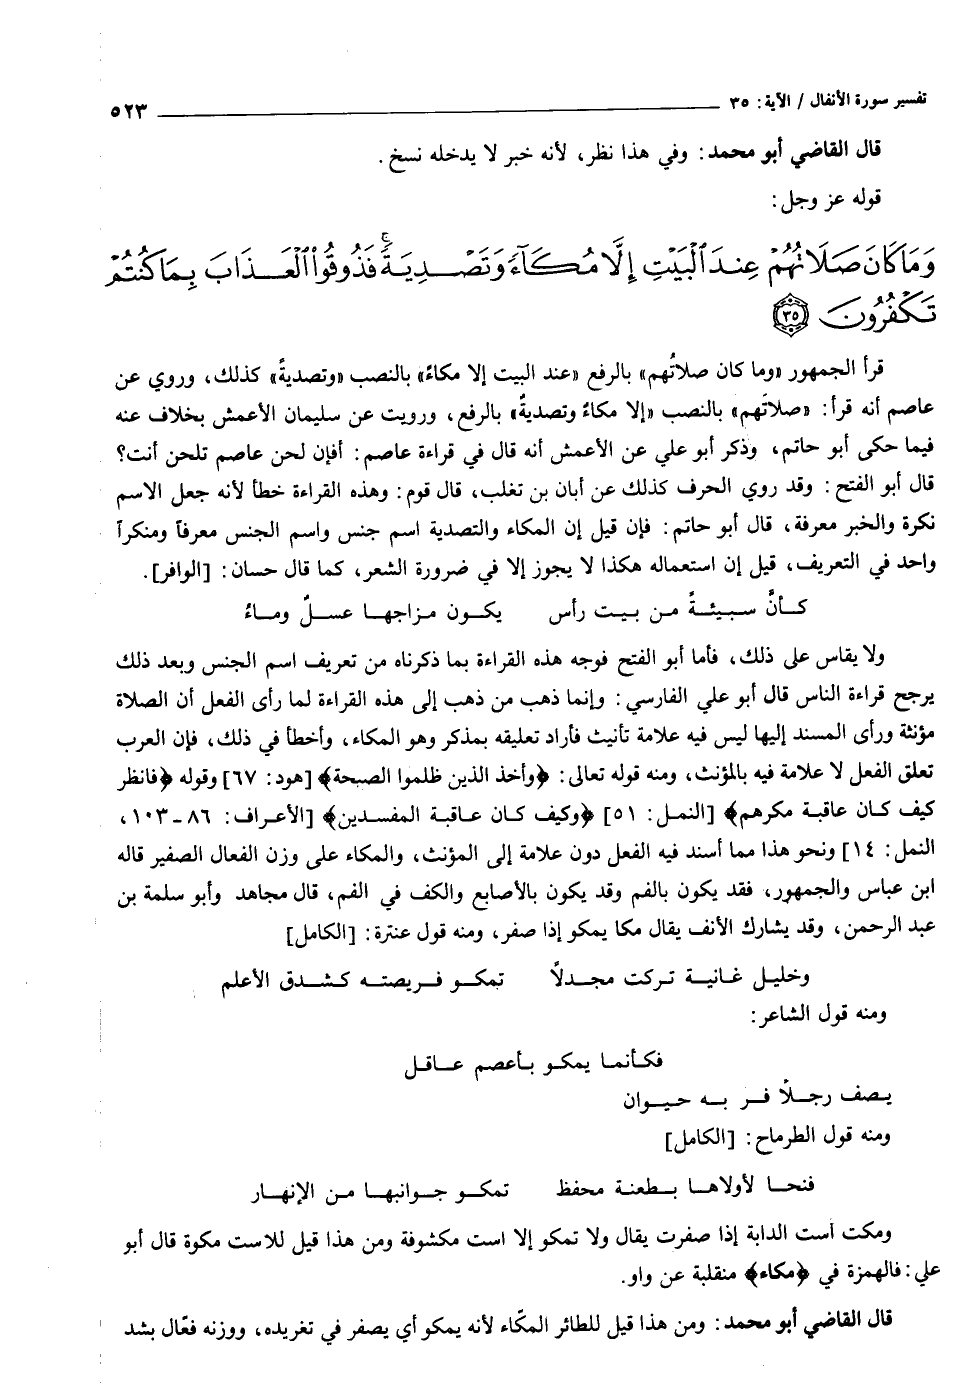 تفسير سورة الأنفال / الآية: ٣٥ ٥٢٣
قال القاضي أبو محمد: وفي هذا نظر، لأنه خبر لا يدخله نسخ.
قوله عز وجل:
وَمَا كَانَ صَلَاتُهُمْ عِندَ ٱلْبَيْتِ إِلَّا مُكَآءً وَتَصْدِيَةً ۚ فَذُوقُوا۟ ٱلْعَذَابَ بِمَا كُنتُمْ
تَكْفُرُونَ ٣٥
قرأ الجمهور «وما كان صلاتُهم» بالرفع «عند البيت إلا مكاءً» بالنصب «وتصديةً» كذلك، وروي عن
عاصم أنه قرأ: «صلاتَهم» بالنصب «إلا مكاءٌ وتصديةٌ» بالرفع، ورويت عن سليمان الأعمش بخلاف عنه
فيما حكى أبو حاتم، وذكر أبو علي عن الأعمش أنه قال في قراءة عاصم: أفإن لحن عاصم تلحن أنت؟
قال أبو الفتح: وقد روي الحرف كذلك عن أبان بن تغلب، قال قوم: وهذه القراءة خطأ لأنه جعل الاسم
نكرة والخبر معرفة، قال أبو حاتم: فإن قيل إن المكاء والتصدية اسم جنس واسم الجنس معرفاً ومنكراً
واحد في التعريف، قيل إن استعماله هكذا لا يجوز إلا في ضرورة الشعر، كما قال حسان: [الوافر].
كـأنَّ سـبيئـةً مـن بـيـت رأس يكـون مـزاجهـا عسـلٌ ومـاءُ
ولا يقاس على ذلك، فأما أبو الفتح فوجه هذه القراءة بما ذكرناه من تعريف اسم الجنس وبعد ذلك
يرجح قراءة الناس قال أبو علي الفارسي: وإنما ذهب من ذهب إلى هذه القراءة لما رأى الفعل أن الصلاة
مؤنثة ورأى المسند إليها ليس فيه علامة تأنيث فأراد تعليقه بمذكر وهو المكاء، وأخطأ في ذلك، فإن العرب
تعلق الفعل لا علامة فيه بالمؤنث، ومنه قوله تعالى: ﴿وأخذ الذين ظلموا الصيحة﴾ [هود: ٦٧] وقوله ﴿فانظر
كيف كان عاقبة مكرهم﴾ [النمل: ٥١] ﴿وكيف كان عاقبة المفسدين﴾ [الأعراف: ٨٦ - ١٠٣،
النمل: ١٤] ونحو هذا مما أسند فيه الفعل دون علامة إلى المؤنث، والمكاء على وزن الفعال الصفير قاله
ابن عباس والجمهور، فقد يكون بالفم وقد يكون بالأصابع والكف في الفم، قال مجاهد وأبو سلمة بن
عبد الرحمن، وقد يشارك الأنف يقال مكا يمكو إذا صفر، ومنه قول عنترة: [الكامل]
وخليـل غـانيـة تـركت مجـدلاً تمكـو فـريصتـه كـشـدق الأعلم
ومنه قول الشاعر:
فكـأنمـا يمكـو بـأعصم عـاقـل
يـصف رجـلاً فـر بـه حيـوان
ومنه قول الطرماح: [الكامل]
فنحـا لأولاهـا بـطعنـة محفظ تمكـو جـوانبهـا مـن الإنهـار
ومكت است الدابة إذا صفرت يقال ولا تمكو إلا است مكشوفة ومن هذا قيل للاست مكوة قال أبو
علي: فالهمزة في ﴿مكاء﴾ منقلبة عن واو.
قال القاضي أبو محمد: ومن هذا قيل للطائر المكّاء لأنه يمكو أي يصفر في تغريده، ووزنه فعّال بشد